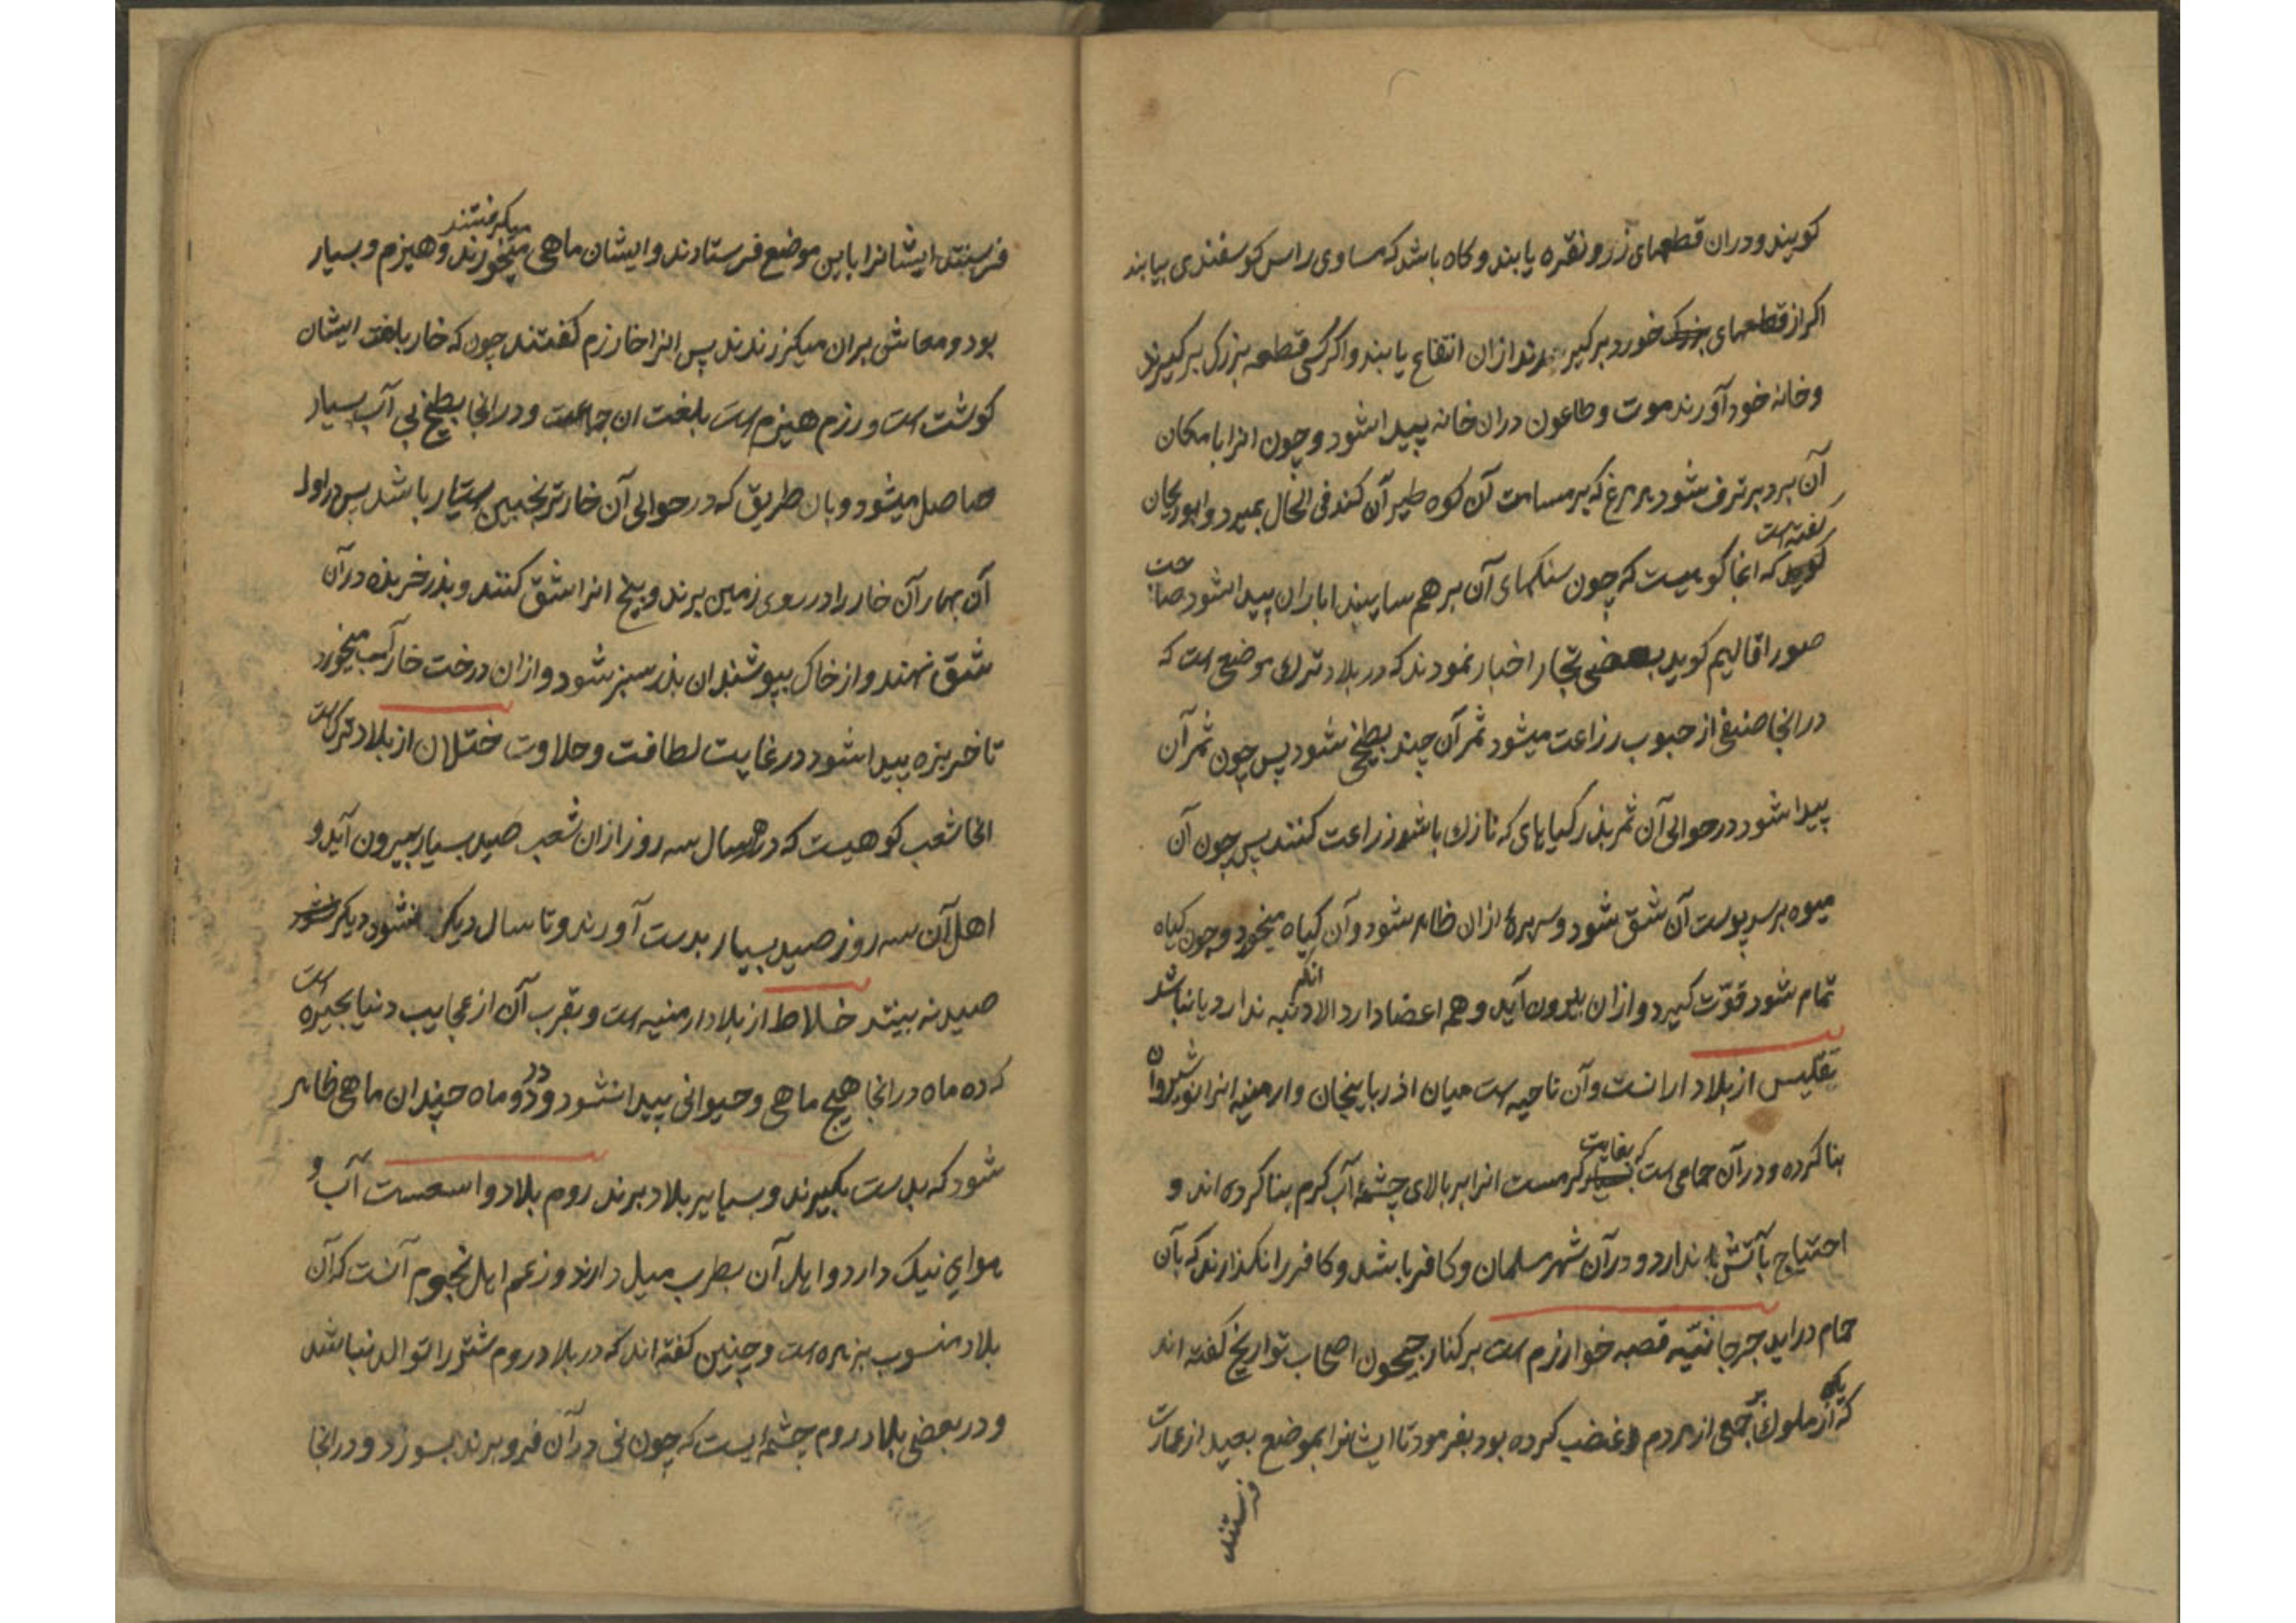 کویند و دران قطعهای زر و نقره یابند و کاه باشد که مساوی راس کوسفندی بیابند
اکر از قطعهای خورد برکیرند ازان انتفاع یابند و اکر کسی قطعه بزرک برکیرند
و خانه خود آورند موت و طاعون دران خانه پیدا شود و چون انرا بامکان
آن برد برترف شود هر مرغ که بر مسامت آن کوه طیرآن کند فی الحال بمیرد و ابوریحان
گفته است
که انجا کوهیست که چون سنکهای آن بر هم سایند باران پیدا شود صاحب
صور اقالیم کوید بعضی تجار اخبار نمودند که در بلاد ترک موضع است که
در انجا صنفی از حبوب زراعت میشود ثمر آن چند بطیخی شود پس چون ثمر آن
پیدا شود در حوالی آن ثمر بذر کیاهای که نازک باشد زراعت کنند پس چون آن
میوه برسد پوست آن شق شود و سر بره ازان ظاهر شود و آن کیاه میخورد و چون کیاه
تمام شود قوّت کیرد و ازان بیرون آید و همه اعضا دارد الا دنبه ندارد یا نباشد
تفلیس از بلاد ارانست و آن ناحیه است میان اذربایجان و ارمنیه انرا نوشیروان
بنا کرده و در آن حمامی است که بغایت کرمست انرا بر بالای چشمهٔ آب کرم بنا کرده اند و
احتیاج بآتش ندارد و در آن شهر مسلمان و کافر باشد و کافر را نکذارند که بآن
حمام دراید جرجانیّه قصبه خوارزم است بر کنار جیحون اصحاب تواریخ کفته اند
که یکی از ملوک بر جمعی از مردم غضب کرده بود بفرمود تا ایشانرا بموضع بعید از عمارت
فرستند
فرستند ایشانرا باین موضع فرستادند و ایشان ماهی میکرفتند میخورند و هیزم و بسیار
بود و معاش بران میکزرندند پس انرا خارزم کفتند چون که خار بلغت ایشان
کوشت است و رزم هیزم است بلغت ان جماعت و در انجا بطیخ بی آب بسیار
حاصل میشود و بان طریق که در حوالی آن خار ترنجبین بسیار باشد پس در اول
آن بهار آن خار را در روی زمین برند و بیخ انرا شق کنند و بذر خربزه در آن
شق نهند و از خاک بپوشند ان بذر سبز شود و ازان درخت خار آب میخورد
تا خربزه پیدا شود در غایت لطافت و حلاوت ختلان از بلاد ترک است
انجا شعب کوهیست که در هر سال سه روز ازان شعب صید بسیار بیرون آید و
اهل آن سه روز صید بسیار بدست آورند و تا سال دیکر دیکر
صید نه بینند خلاط از بلاد ارمنیه است و بقرب آن از عجایب دنیا بحیره است
که ده ماه در انجا هیچ ماهی و حیوانی پیدا نشود و در دو ماه چندان ماهی ظاهر
شود که بدست بکیرند و بسایر بلاد برند روم بلاد واسعست آب و
هوای نیک دارد و اهل آن بطرب میل دارند و زعم اهل نجوم آنست که آن
بلاد منسوب بزهره است و چنین کفته اند که در بلاد روم شتر را توالد نباشد
و در بعضی بلاد روم چشمه ایست که چون نی در آن فرو برند بسوزد و در انجا